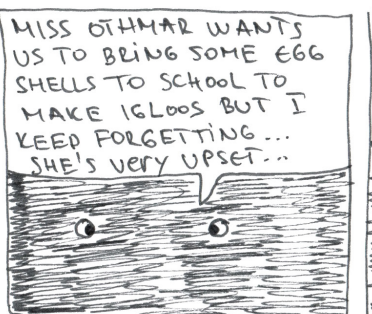 MISS OTHMAR WANTS
US TO BRING SOME EGG
SHELLS TO SCHOOL TO
MAKE IGLOOS BUT I
KEEP FORGETTING...
SHE'S VERY UPSET...